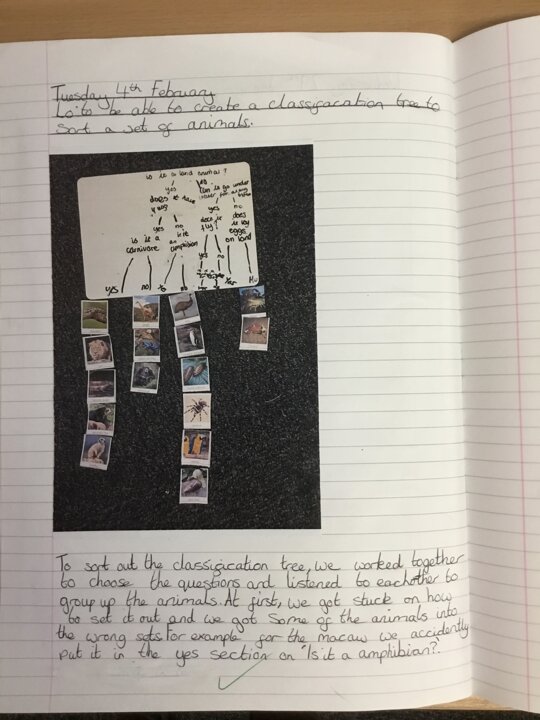 Tuesday 4th February
Lo: to be able to create a classificacation tree to
sort a set of animals.
is it a land animal?
yes
no
does it have
4 legs
can it go under
water for a long
yes
no
yes
no
is it a
carnivore
is it
an
amphibian
does it
fly?
does
it lay
eggs
on land
yes
no
yes
no
yes
no
To sort out the classification tree, we worked together
to choose the questions and listened to eachother to
group up the animals. At first, we got stuck on how
to set it out and we got some of the animals into
the wrong sets for example for the macaw we accidently
put it in the yes section on "Is it a amphibian?"